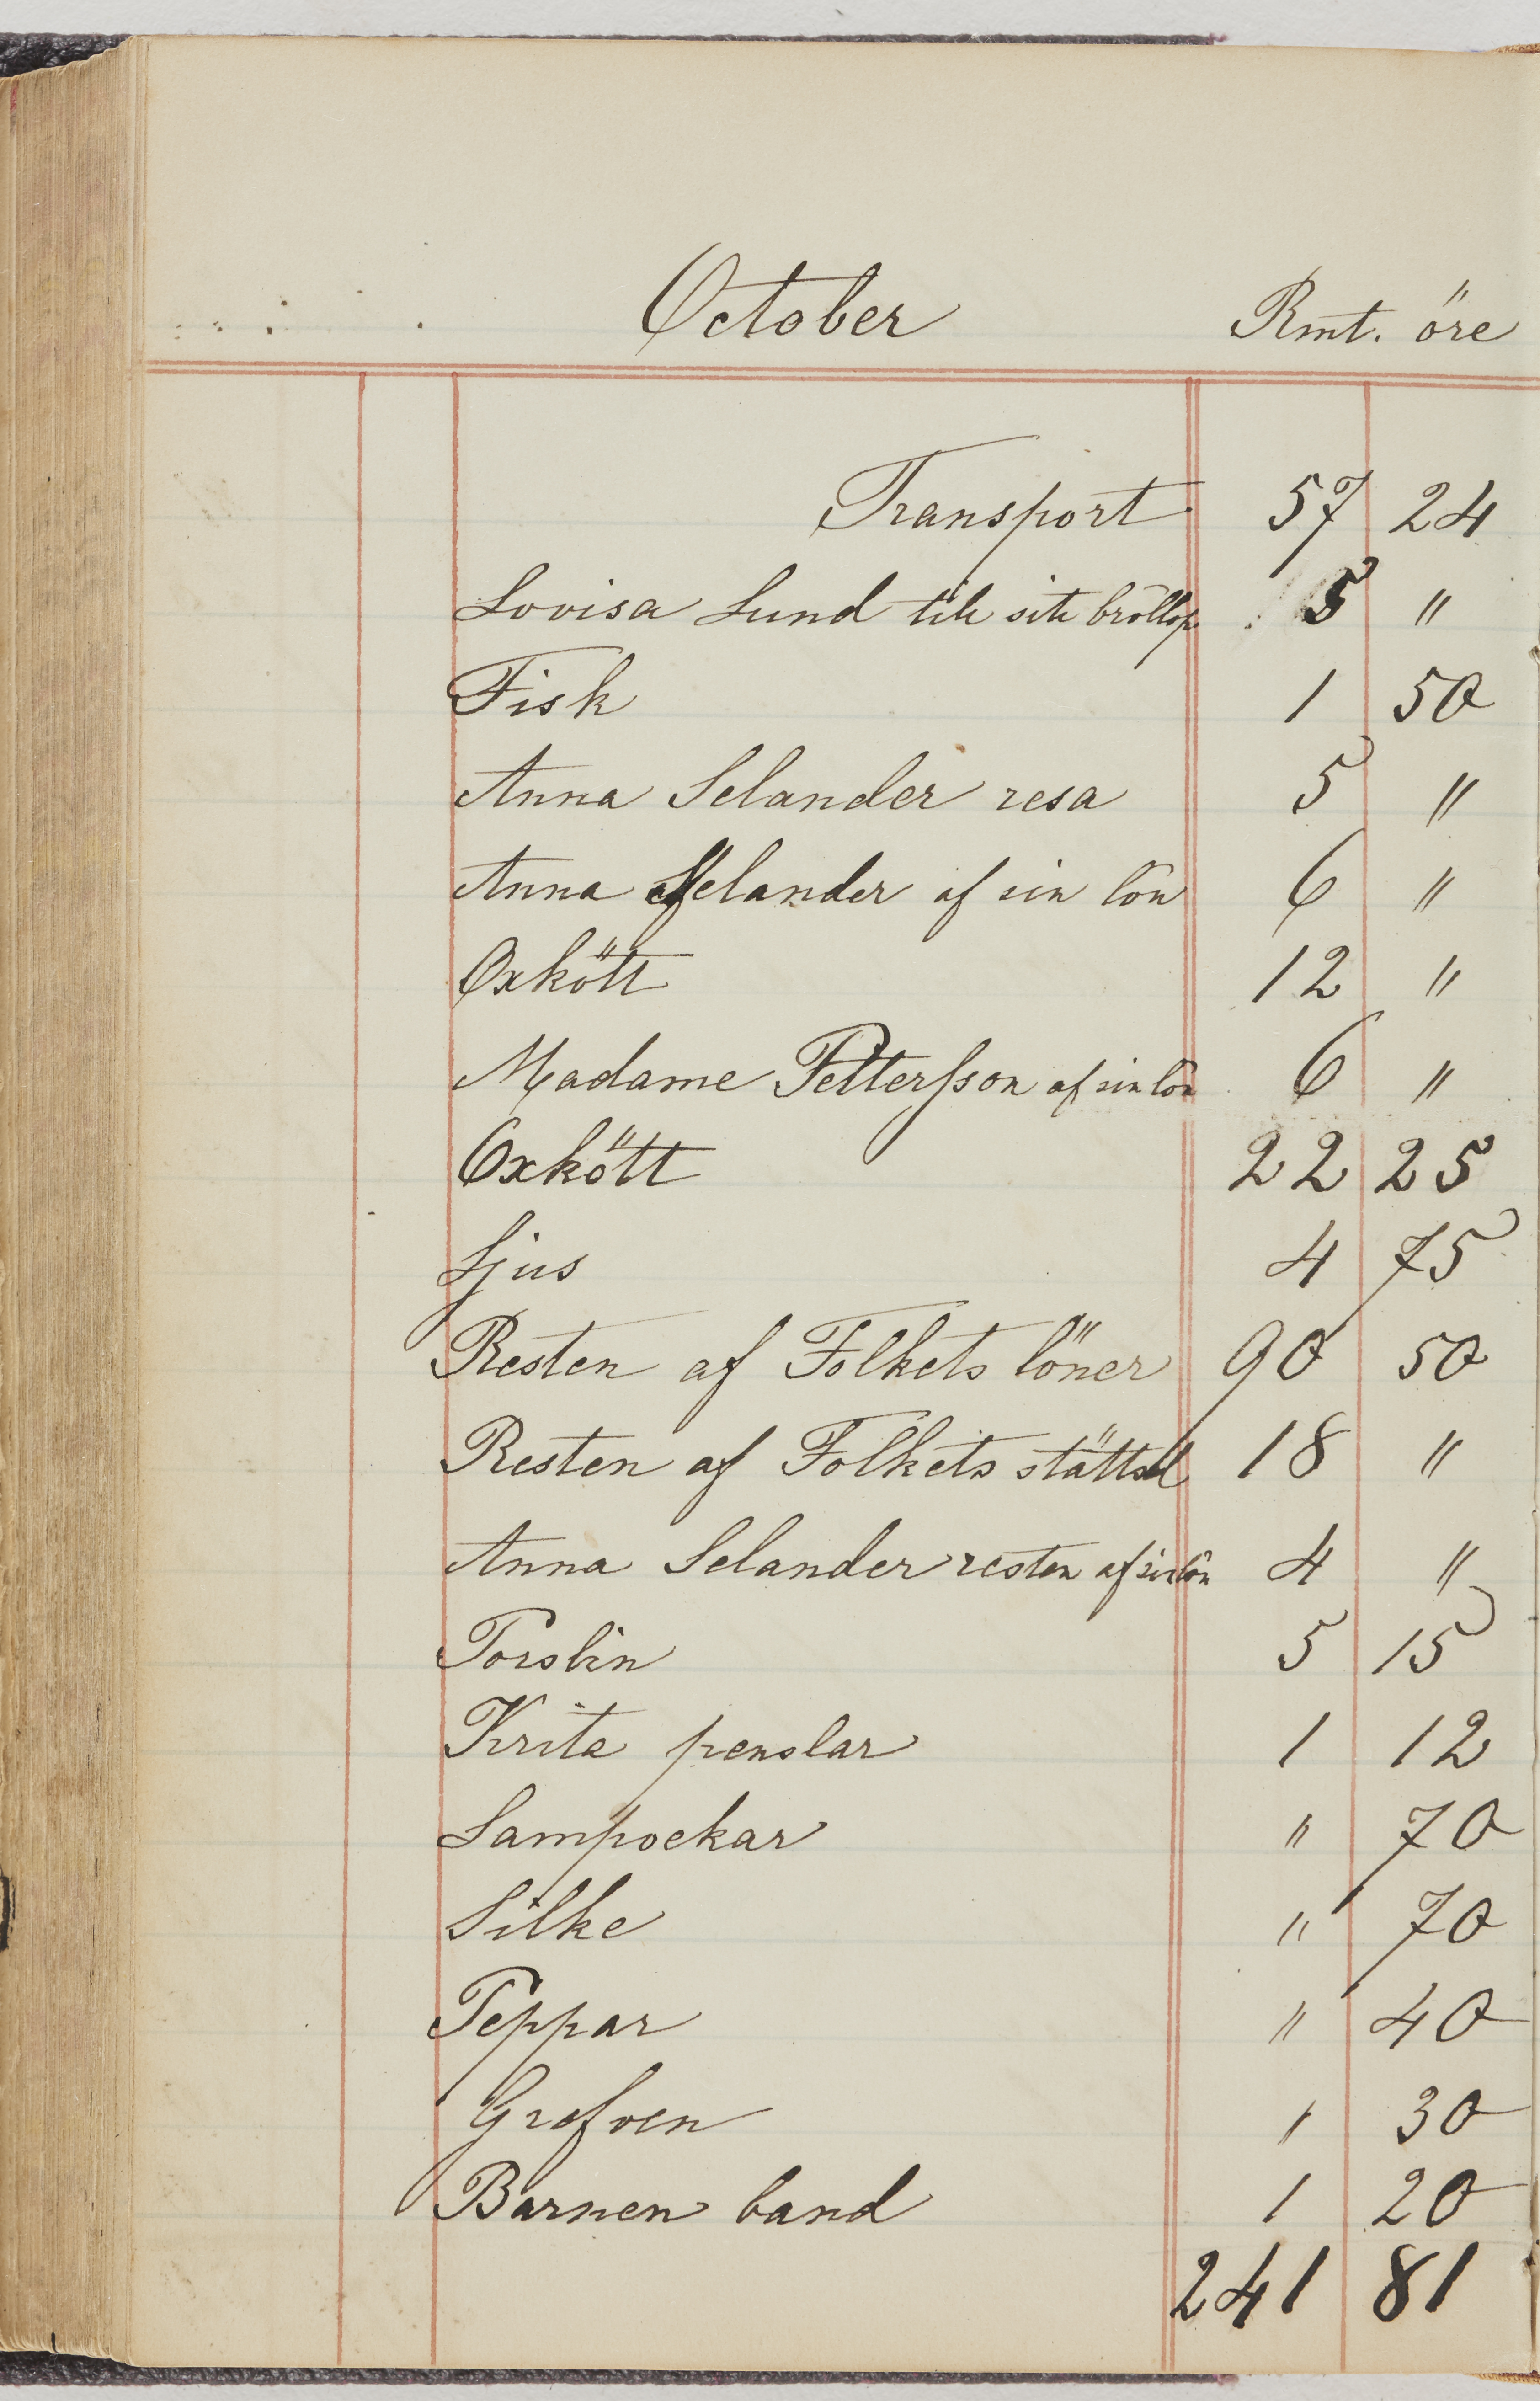 October Rmt. öre
Transport 57 24
Lovisa Lund till sitt bröllop 5 "
Fisk 1 50
Anna Selander resa 5 "
Anna Selander af sin lön 6 "
Oxkött 12 "
Madame Pettersson af sin lön 6 "
Oxkött 22 25
Ljus 4 75
Resten af Folkets löner 90 50
Resten af Folkets 18 "
Anna Selander resten af sin lön 4 "
Porslin 5 15
Krita penslar 1 12
Lampockar " 70
Silke " 70
Peppar " 40
Grefven 1 30
Barnen band 1 20
241 81